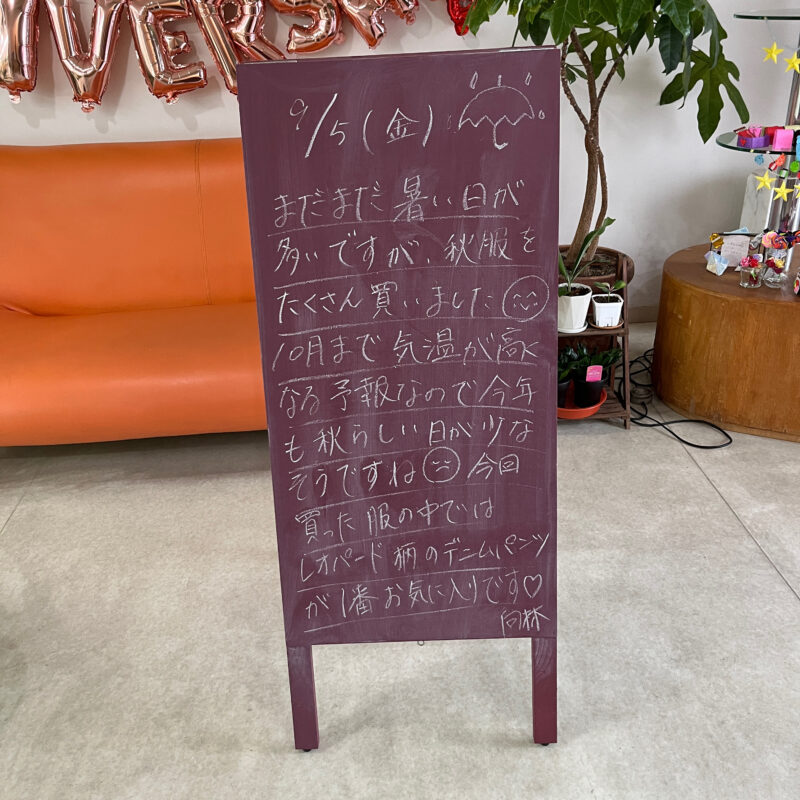 IVERSA
9/5(金)
まだまだ暑い日が
多いですが、秋服を
たくさん買いました
10月まで気温が高く
なる予報なので今年
も秋らしい日が少な
そうですね 今回
買った服の中では
レオパード柄のデニムパンツ
が1番お気に入りです♡
向林